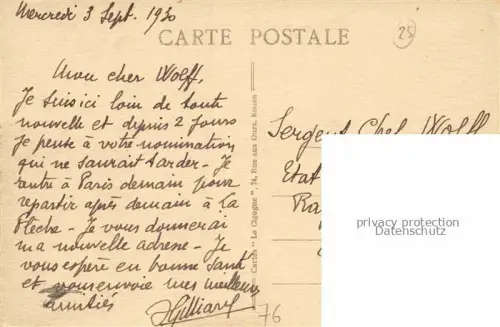 Mercredi 3 Sept. 1930
CARTE POSTALE
25
Mon cher Wolff,
Je suis ici loin de toute
nouvelle et depuis 2 jours
je pense à votre nomination
qui ne saurait tarder - Je
rentre à Paris demain pour
repartir après demain à La
Flèche - Je vous donnerai
ma nouvelle adresse - Je
vous espère en bonne santé
et vous envoie mes meilleures
amitiés
Cartes "La Cigogne", 74, Rue aux Ours, Rouen
Sergent Chef Wolff
Etat
privacy protection
Datenschutz
76